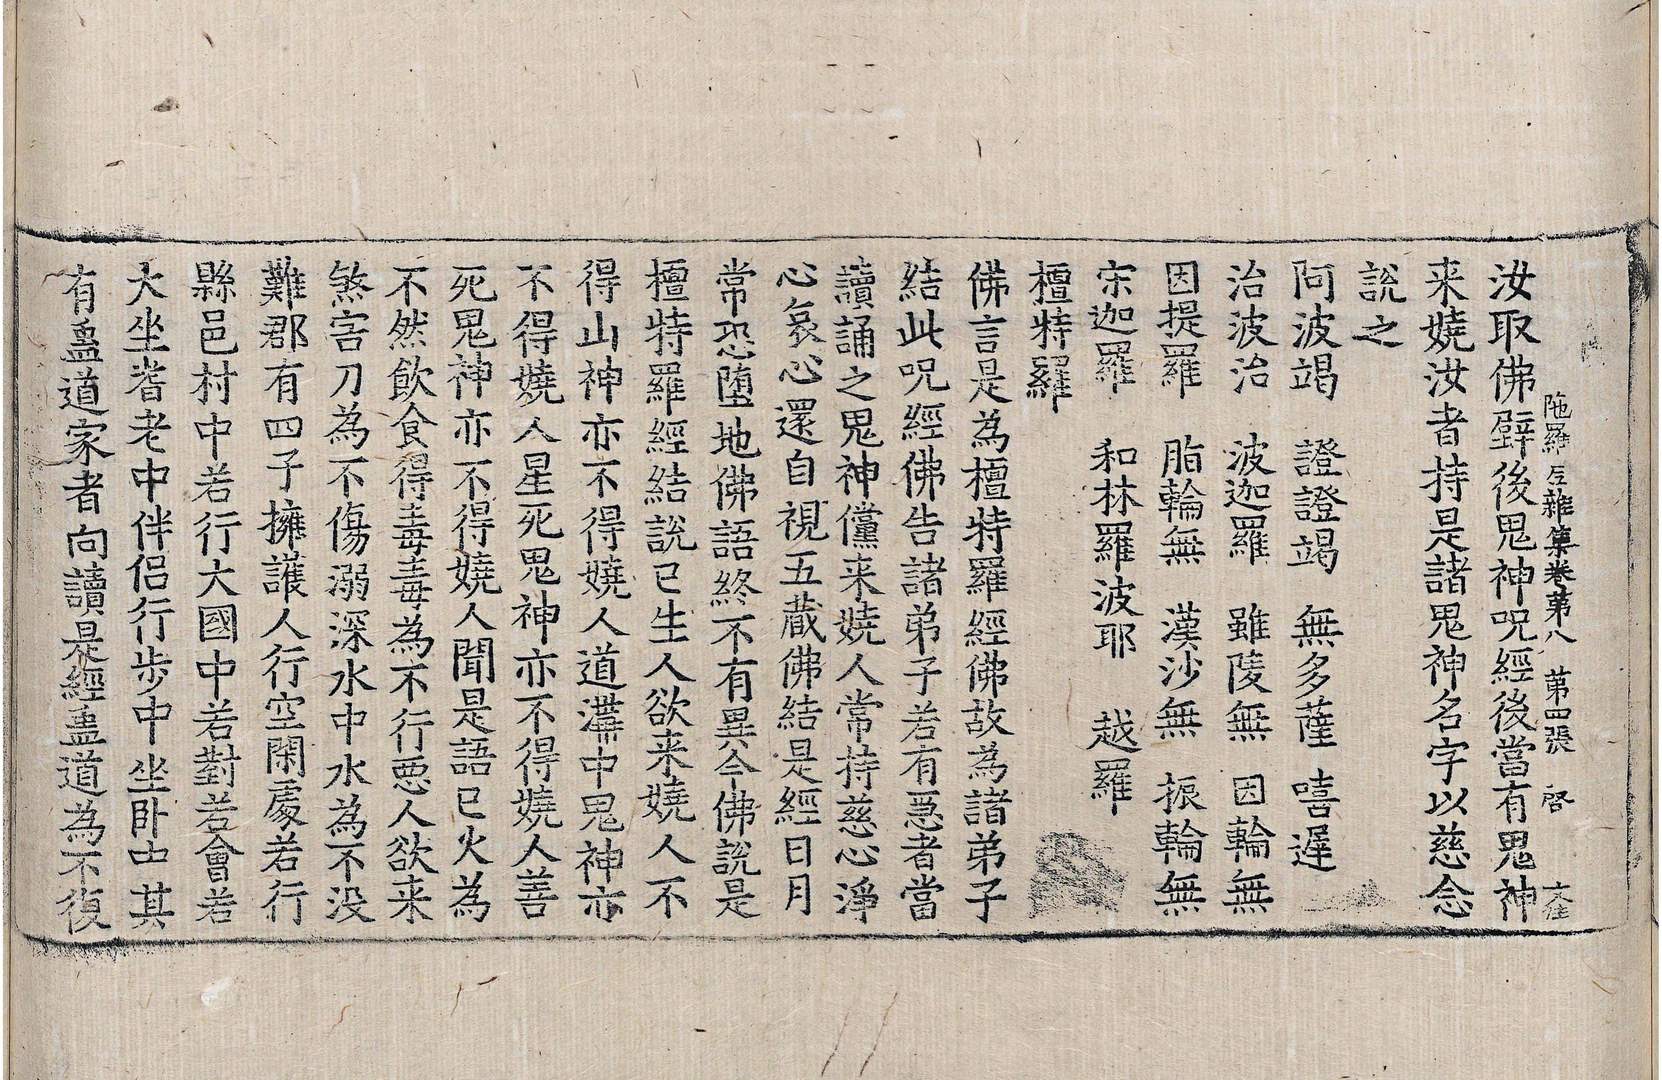 陁羅𡰱雜集卷第八 第四張 啓
汝取佛辟後鬼神呪經後當有鬼神
来嬈汝者持是諸鬼神名字以慈念
說之
阿波竭 證證竭 無多薩 嘻遲
治波治 波迦羅 雖陵無 因輪無
因提羅 脂輪無 漢沙無 振輪無
宋迦羅 和林羅波耶 越羅
檀特羅
佛言是為檀特羅經佛故為諸弟子
結此呪經佛告諸弟子若有急者當
讀誦之鬼神儻来嬈人常持慈心淨
心哀心還自視五藏佛結是經日月
常恐墮地佛語終不有異今佛說是
檀特羅經結說已生人欲来嬈人不
得山神亦不得嬈人道溝中鬼神亦
不得嬈人星死鬼神亦不得嬈人善
死鬼神亦不得嬈人聞是語已火為
不然飲食得毒毒為不行惡人欲来
煞害刀為不傷溺深水中水為不没
難郡有四子擁護人行空閑處若行
縣邑村中若行大國中若對若會若
大坐耆老中伴侣行步中坐卧中其
有蠱道家者向讀是經蠱道為不復